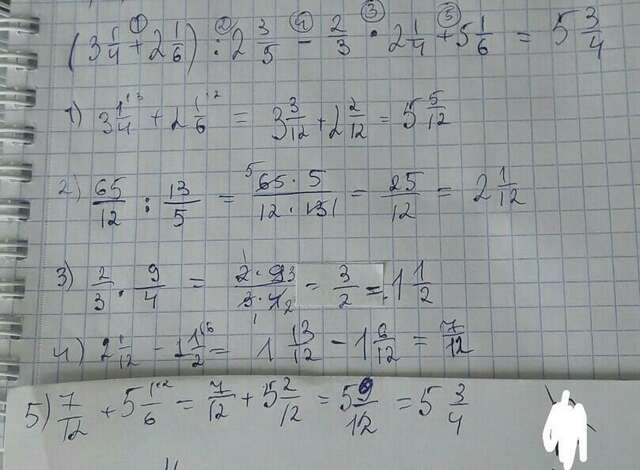 (3 1/4 + 2 1/6) : 2 3/5 - 2/3 · 2 1/4 + 5 1/6 = 5 3/4
1) 3 1/4 + 2 1/6 = 3 3/12 + 2 2/12 = 5 5/12
2) 65/12 : 13/5 = 65 · 5/12 · 13 = 25/12 = 2 1/12
3) 2/3 · 9/4 = 2 · 9/3 · 4 = 3/2 = 1 1/2
4) 2 1/12 - 1 1/2 = 1 13/12 - 1 6/12 = 7/12
5) 7/12 + 5 1/6 = 7/12 + 5 2/12 = 5 9/12 = 5 3/4